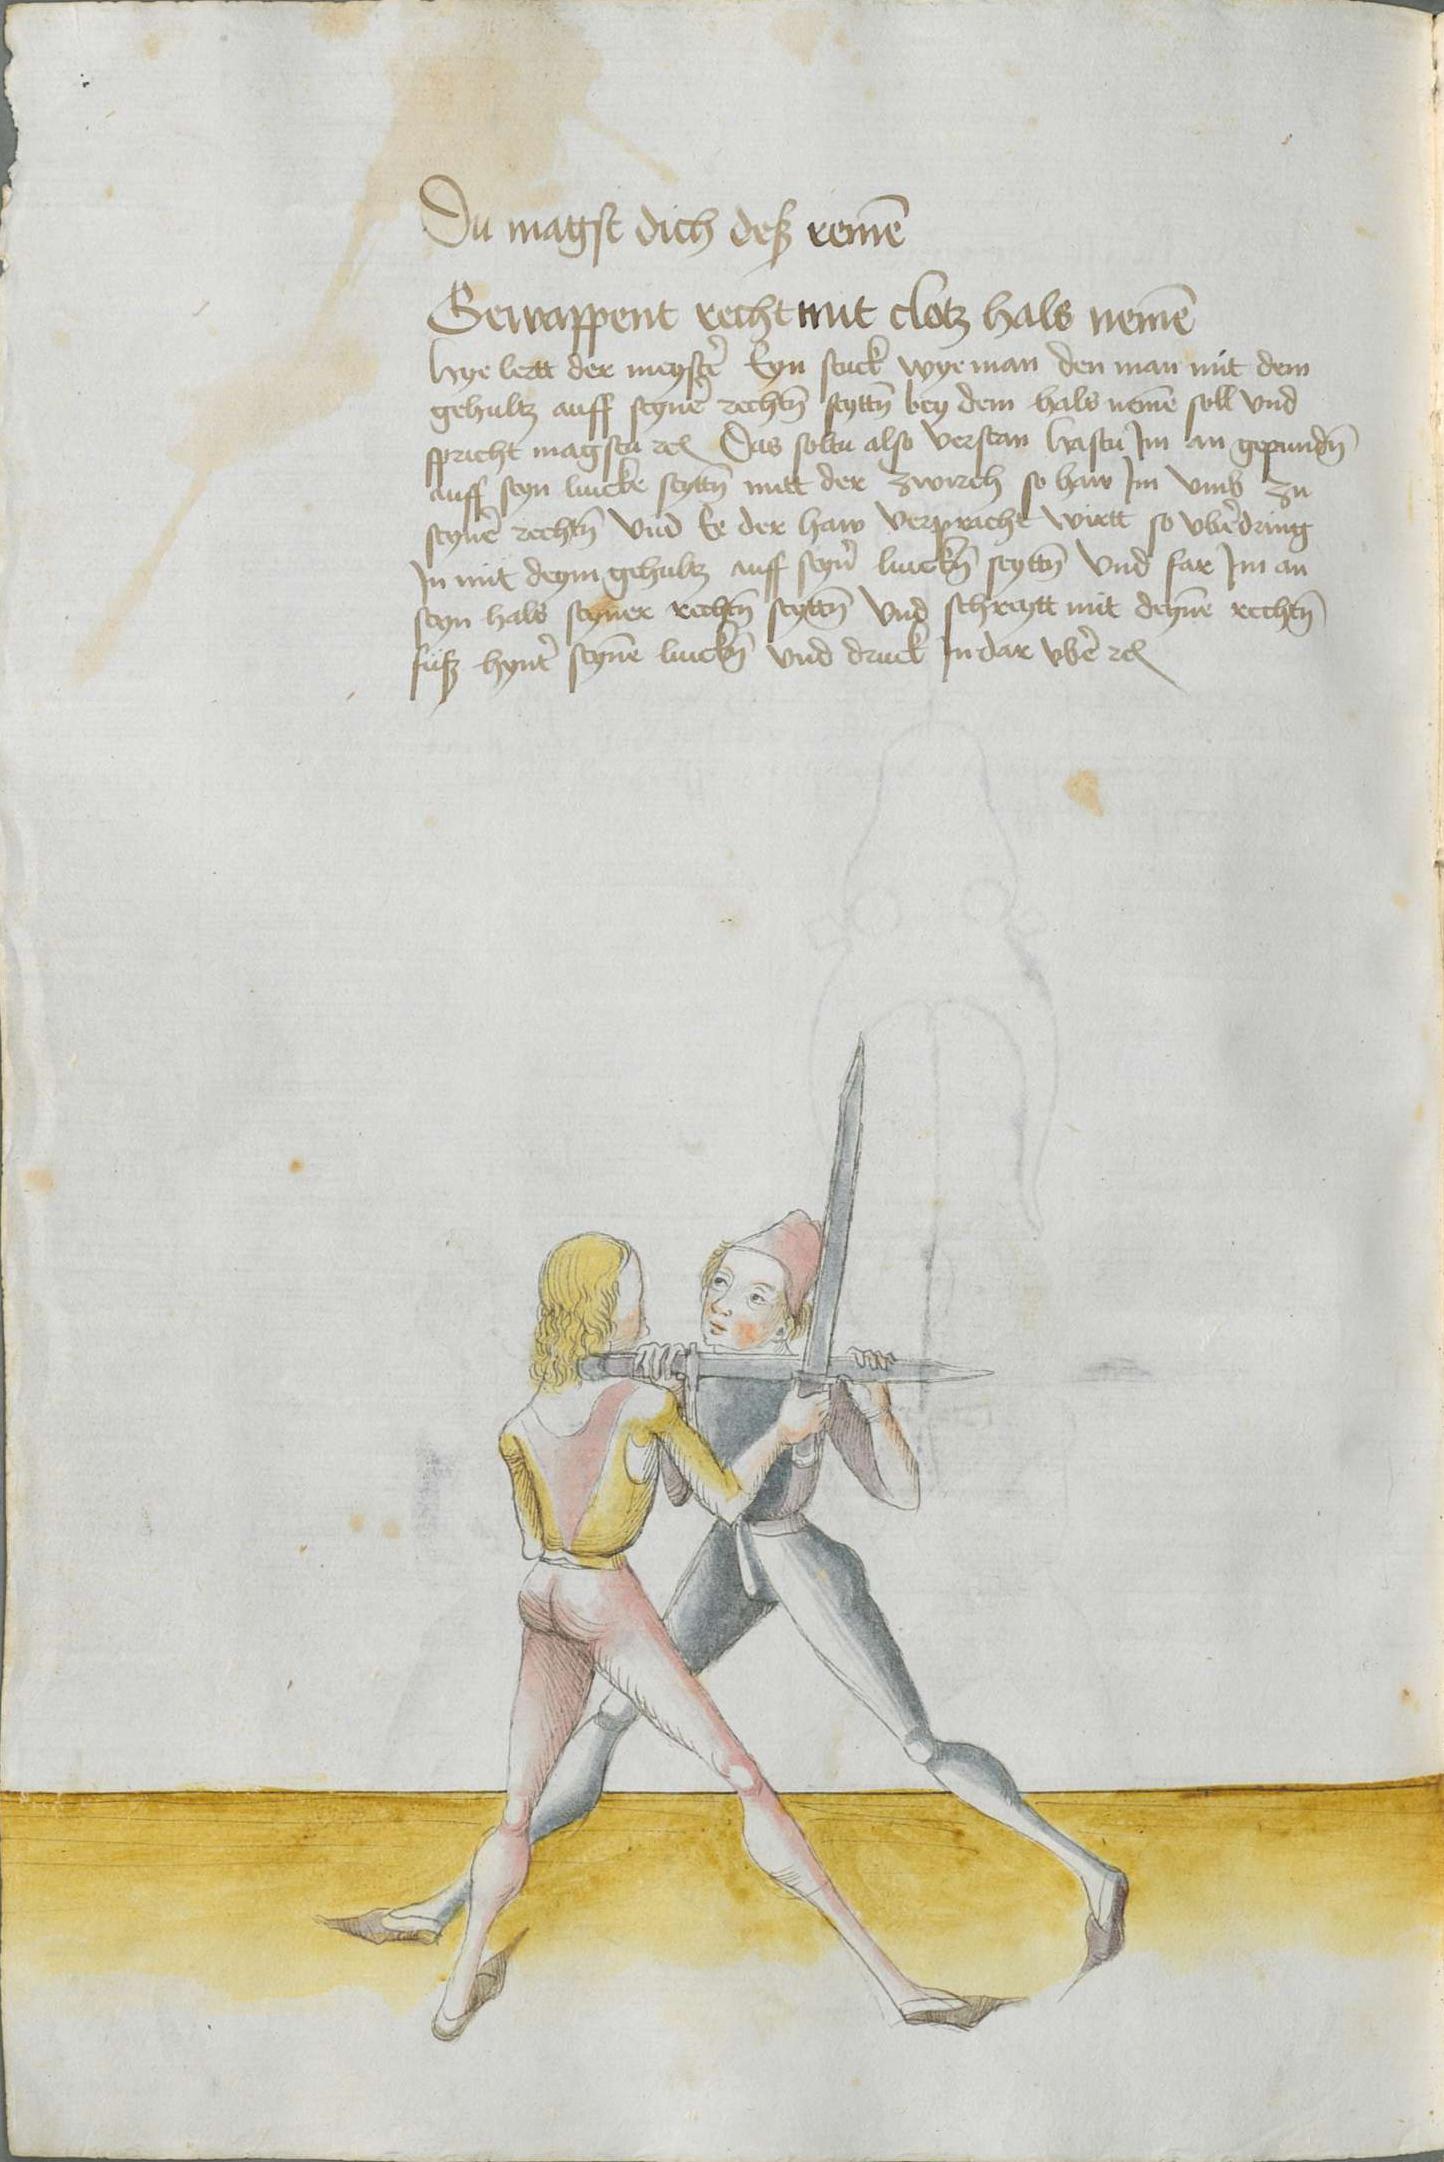 Du magst dich deß remē
Gewappent recht mit clotz hals nemē
Hye lertt der meystē Eyn stuck wye man den man mit dem
gehultz auff seynē rechtn̄ seyttn̄ bey dem hals nemē soll vnd
spricht magstu ꝛc Das soltu also verstan Hastu Im an gepundn̄
auff seyn lincke seyttn̄ mitt der zwirch so haw Im vmb zu
seynē rechtn̄ vnd Ee der haw verpracht wirtt so vbērdring
In mit deym gehultz auff seyn̄ linckn̄ seyttn̄ vnd far Im an
seyn hals seyner rechtn̄ seyttn̄ vnd schreytt mit deynē rechtn̄
fuß hyntē seynē linckn̄ vnd druck In dar vbē ꝛc